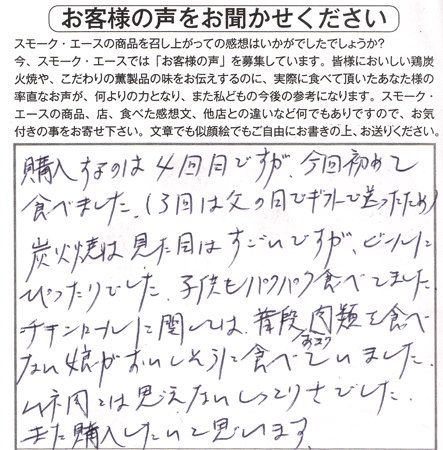 お客様の声をお聞かせください
スモーク・エースの商品を召し上がっての感想はいかがでしたでしょうか?
今、スモーク・エースでは「お客様の声」を募集しています。皆様においしい鶏炭
火焼や、こだわりの薫製品の味をお伝えするのに、実際に食べて頂いたあなた様の
率直なお声が、何よりの力となり、また私どもの今後の参考になります。スモーク・
エースの商品、店、食べた感想文、他店との違いなど何でもありですので、お気
付きの事をお寄せ下さい。文章でも似顔絵でもご自由にお書きの上、お送りください。
購入するのは4回目ですが、今回初めて
食べました。(3回は父の日でギフトで送ったため)
炭火焼は見た目はすごいですが、ビールに
ぴったりでした。子供もパクパク食べてました。
チキンロールに関しては、普段、肉類を食べ
ない娘がおいしそうに食べていました。
ムネ肉とは思えないしっとりさでした。
また購入したいと思います。